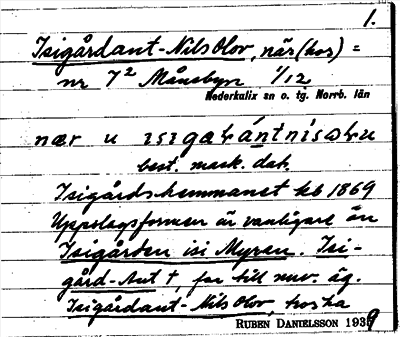 1.
Isigårdant-Nils Olov, när (hos) =
nr 7² Månsbyn 1/12
Nederkalix sn o. tg. Norrb. län
best. mask. dat.
Isigårdshemmanet kb 1869
Uppslagsformen är vanligare än
Isigården isi Myren. Isi-
gård-Ant †, far till nuv. äg.
Isigårdant-Nils Olov, hoska
RUBEN DANIELSSON 1939